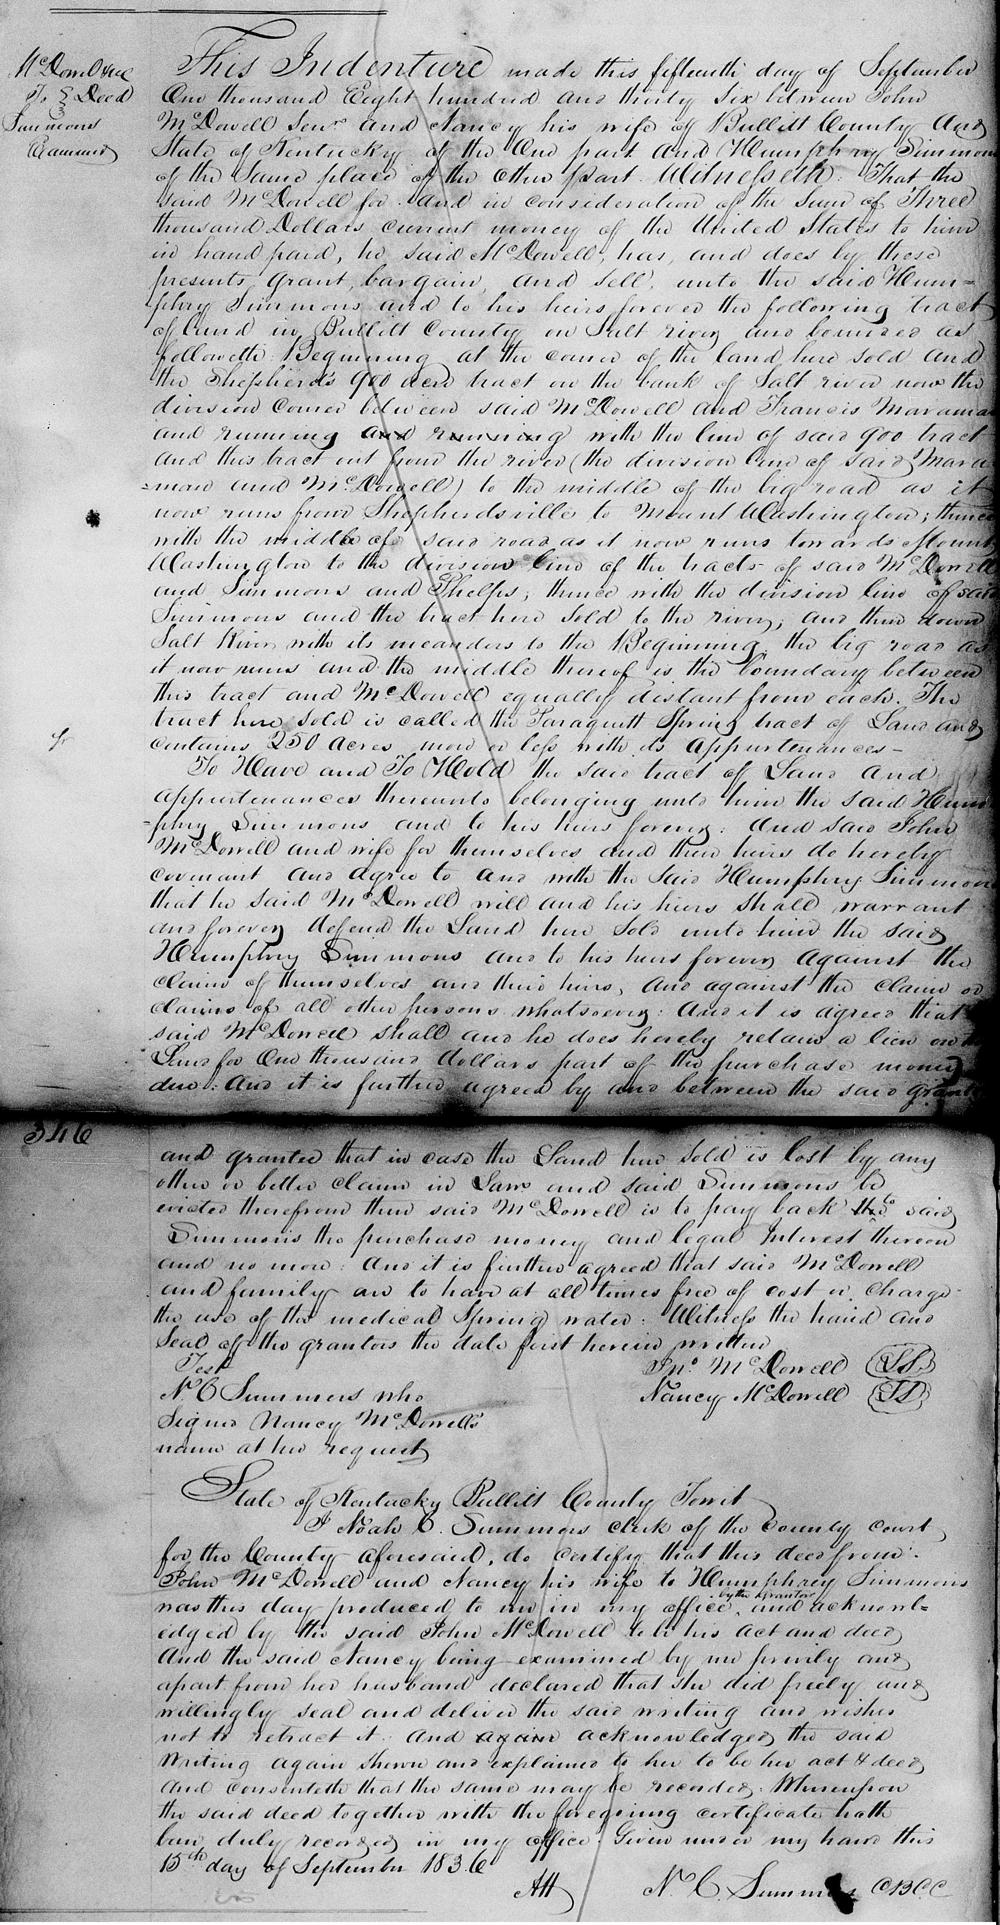 McDowell &c
To } Deed
Simmons
Examined
This Indenture made this fifteenth day of September
One thousand Eight hundred and thirty six between John
McDowell Senr and Nancy his wife of Bullitt County and
State of Kentucky of the One part and Humphrey Simmons
of the Same place of the other part. Witnesseth. That the
said McDowell for and in consideration of the sum of Three
thousand Dollars current money of the United States to him
in hand paid, he said McDowell, has, and does by these
presents, grant, bargain, and sell, unto the said Hum=
phry Simmons and to his heirs forever the following tract
of land in Bullitt County on Salt river and bounded as
followeth: Beginning at the corner of the land here sold and
the Shepherd's 900 acre tract on the bank of Salt river now the
division corner between said McDowell and Francis Maraman
and running and running with the line of said 900 tract
and this tract out from the river (the division line of said Mara
=man and McDowell) to the middle of the big road as it
now runs from Shepherdsville to Mount Washington; thence
with the middle of said road as it now runs towards Mount
Washington to the division line of the tracts of said McDowell
and Simmons and Phelps; thence with the division line of said
Simmons and the tract here sold to the river; and then down
Salt River with its meanders to the Beginning, the big road as
it now runs and the middle thereof is the boundary between
this tract and McDowell equally distant from each. The
tract here sold is called the Paraquett Spring tract of Land and
contains 250 Acres more or less with its appurtenances-
To Have and To Hold the said tract of Land and
appurtenances thereunto belonging unto him the said Hum
=phry Simmons and to his heirs forever: And said John
McDowell and wife for themselves and their heirs do hereby
covenant and agree to and with the said Humphry Simmons
that he said McDowell will and his heirs shall warrant
and forever defend the Land here sold unto him the said
Humphry Simmons and to his heirs forever against the
claim of themselves and their heirs, and against the claim or
claims of all other persons whatsoever: And it is agreed that
said McDowell shall and he does hereby retain a lien on the
Land for One thousand dollars part of the purchase money
due: And it is further agreed by and between the said grantor
346
and grantee that in case the Land here sold is lost by any
other or better claim in Law and said Simmons be
evicted therefrom then said McDowell is to pay back to said
Simmons the purchase money and legal Interest thereon
and no more: And it is further agreed that said McDowell
and family are to have at all times free of cost or charge
the use of the medical Spring water: Witness the hand and
Seal of the grantors the date first herein written
Test
Jno McDowell (SS.)
N. C Summers who
Nancy McDowell (SS)
Signed Nancy McDowell's
name at her request
State of Kentucky Bullitt County Towit
I Noah C. Summers clerk of the County court
for the County aforesaid, do certify that this deed from
John McDowell and Nancy his wife to Humphrey Simmons
was this day produced to me in my office by the Grantors and acknowl=
edged by the said John McDowell to be his act and deed
And the said Nancy being examined by me privily and
apart from her husband declared that she did freely and
willingly seal and deliver the said writing and wishes
not to retract it. And again acknowledged the said
Writing again shown and explained to her to be her act & deed
and consenteth that the same may be recorded. Whereupon
the said deed together with the foregoing certificate hath
been duly recorded in my office. Given under my hand this
15th day of September 1836
Att N. C. Summers CBCC